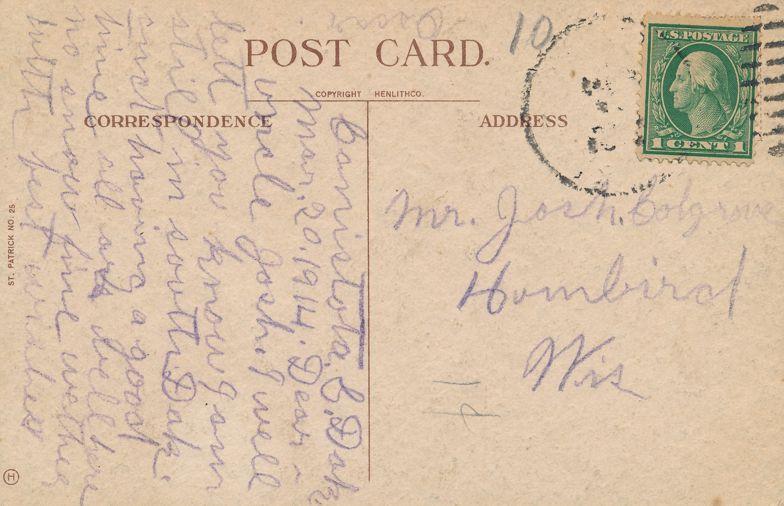 10
U.S. POSTAGE
1 CENT 1
POST CARD.
COPYRIGHT HENLITHCO.
CORRESPONDENCE
ADDRESS
Canistota, S. Dak
Mar. 20. 1914. Dear
uncle Josh. I will
let you know I am
still in south. Dak.
and having a good
time all are well here
no snow fine wether
with best wishes
Oscar
Mr. Josh. Colgrove
Humbird
Wis
14
ST. PATRICK NO. 25
H